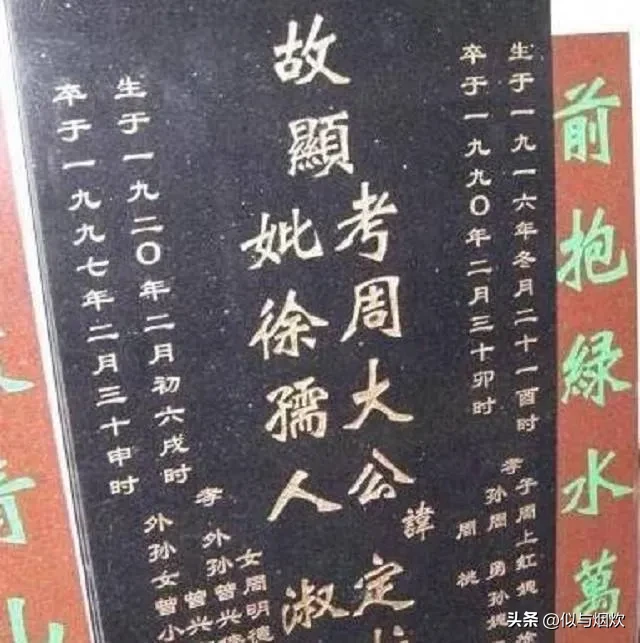 前抱緑水萬
生于一九一六年冬月二十一酉时
卒于一九九〇年二月三十卯时
孝子周上虹媳
孙周勇孙媳
周
故顯
考周大公諱定
妣徐孺人淑
孝女周明德
外孙曾兴
曾兴
外孙女曾小
生于一九二〇年二月初六戌时
卒于一九九七年二月三十申时
青山
头条 @似与烟炊